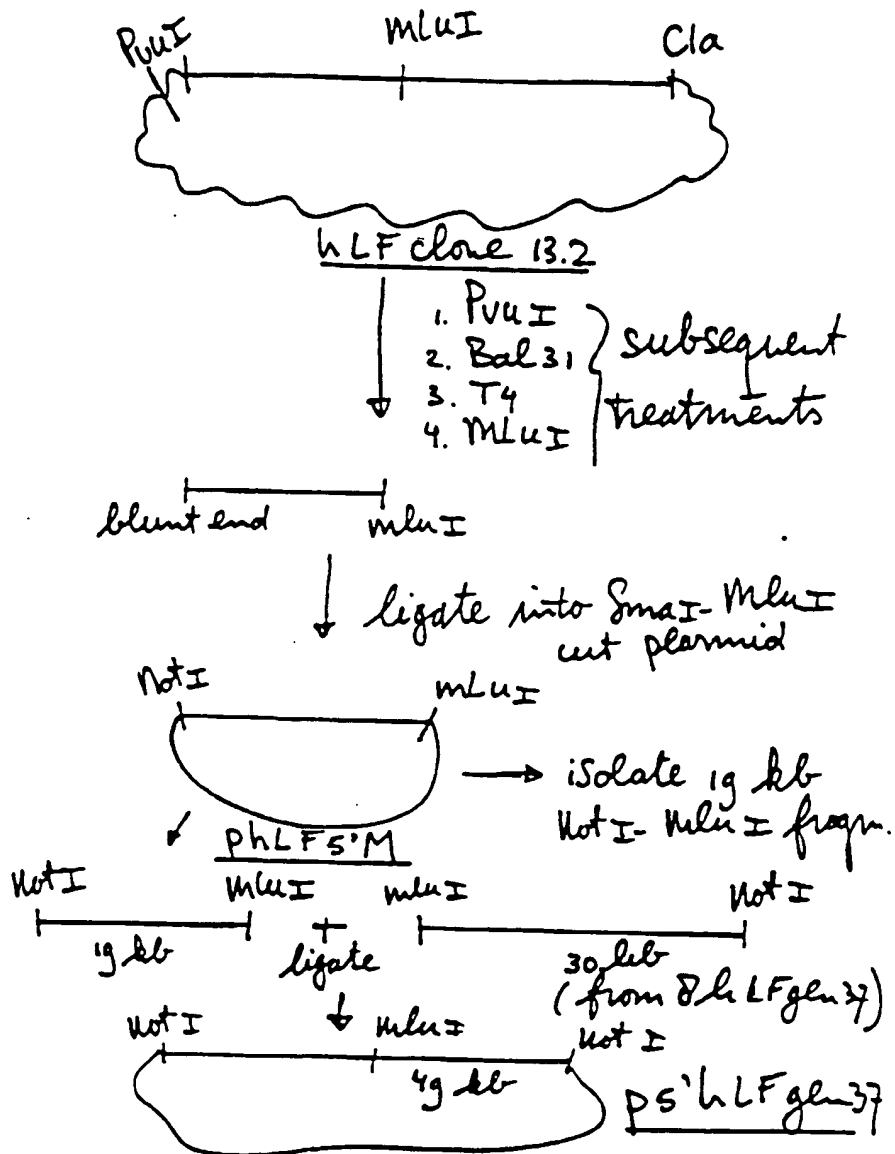 PvuI
MLuI
Cla
hLF clone 13.2
1. PvuI
2. Bal31
3. T4
4. MLuI
subsequent
treatments
blunt end
mluI
ligate into SmaI-MluI
cut plasmid
NotI
MLuI
isolate 19 kb
NotI-MluI fragm.
phLF5'M
NotI
MluI
mluI
NotI
19 kb
+
ligate
30 kb
(from 8hLFgen37)
NotI
mluI
NotI
49 kb
p5'hLFgen37